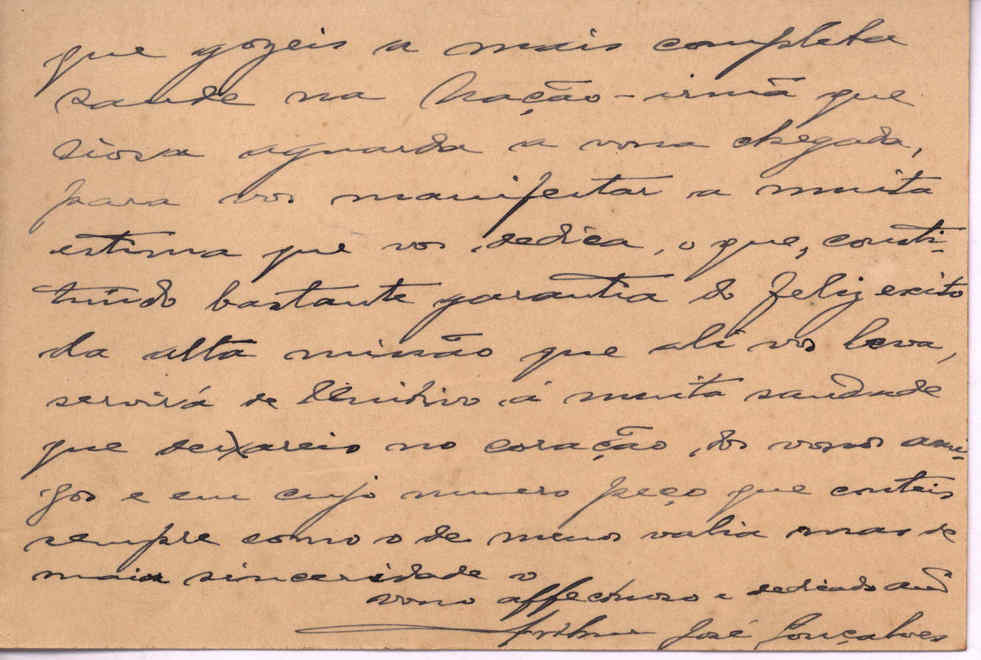 que gozeis a mais completa
saude na Nação-irmã que
aguarda a vossa chegada,
para vos manifestar a muita
estima que vos dedica, o que, consti-
tuindo bastante garantia do feliz exito
da alta missão que ali vos leva,
servirá de lenitivo á muita saudade
que deixareis no coração dos vossos ami-
gos e em cujo numero peço que conteis
sempre como o de menos valia mas de
maior sinceridade o
vosso affectuoso e dedicado amº
José Gonçalves